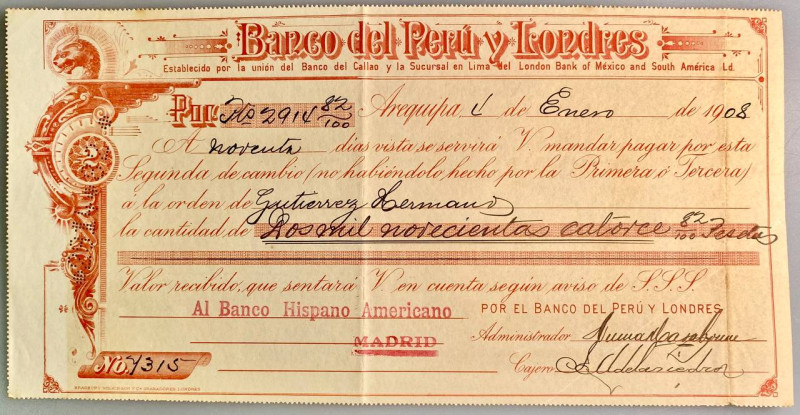 Banco del Perú y Londres
Establecido por la unión del Banco del Callao y la Sucursal en Lima del London Bank of México and South América Ld.
POR 2914 82/100 Arequipa, 4 de Enero de 1908
A noventa dias vista se servirá V. mandar pagar por esta
Segunda de cambio (no habiéndolo hecho por la Primera ó Tercera)
á la orden de Gutierrez Hermanos
la cantidad de Dos mil novecientas catorce 82/100 Pesetas
Valor recibido, que sentará V. en cuenta según aviso de S.S.S.
Al Banco Hispano Americano
POR EL BANCO DEL PERÚ Y LONDRES
MADRID
Administrador
No. 4315
Cajero